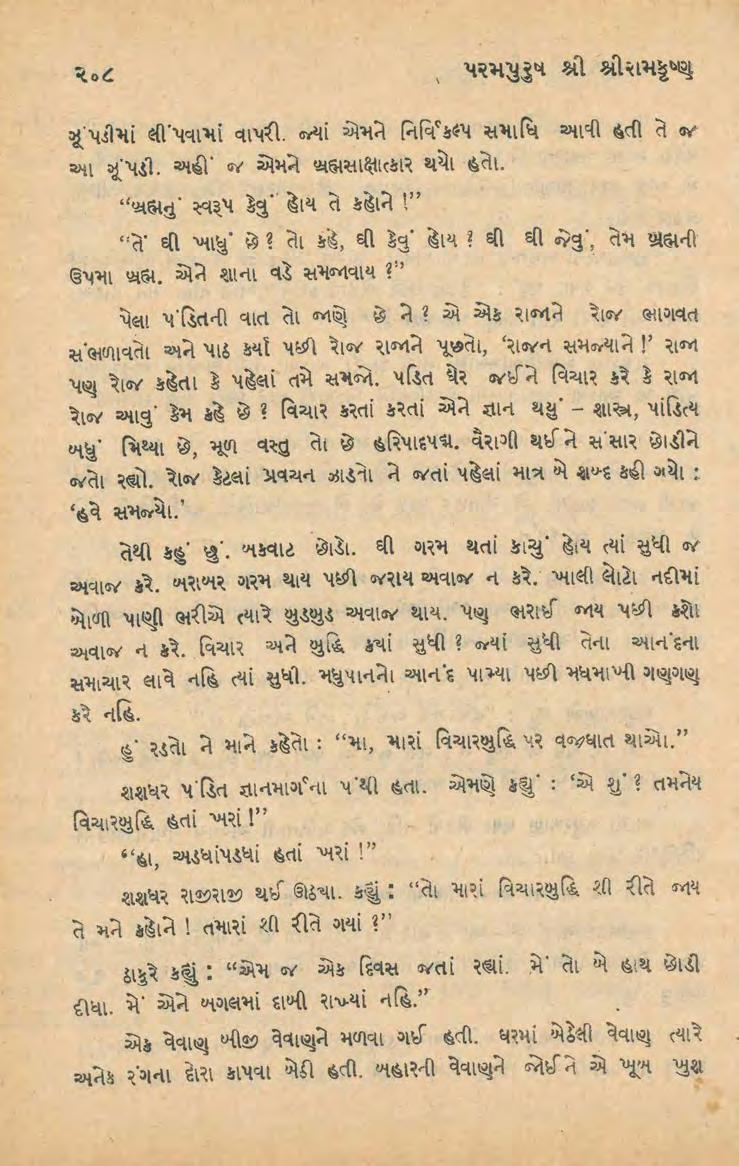 ૨૦૮ પરમપુરુષ શ્રી શ્રીરામકૃષ્ણ
ઝૂંપડીમાં લીંપવામાં વાપરી. જ્યાં એમને નિર્વિકલ્પ સમાધિ આવી હતી તે જ
આ ઝૂંપડી. અહીં જ એમને બ્રહ્મસાક્ષાત્કાર થયો હતો.
“બ્રહ્મનું સ્વરૂપ કેવું હોય તે કહોને !”
“તેં ઘી ખાધું છે ? તો કહે, ઘી કેવું હોય ? ઘી ઘી જેવું, તેમ બ્રહ્મની
ઉપમા બ્રહ્મ. એને શાના વડે સમજાવાય ?”
પેલા પંડિતની વાત તો જાણે છે ને ? એ એક રાજાને રોજ ભાગવત
સંભળાવતો અને પાઠ કર્યા પછી રોજ રાજાને પૂછતો, ‘રાજન સમજ્યાને !’ રાજા
પણ રોજ કહેતા કે પહેલાં તમે સમજો. પંડિત ઘેર જઈને વિચાર કરે કે રાજા
રોજ આવું કેમ કહે છે ? વિચાર કરતાં કરતાં એને જ્ઞાન થયું – શાસ્ત્ર, પાંડિત્ય
બધું મિથ્યા છે, મૂળ વસ્તુ તો છે હરિપાદપદ્મ. વૈરાગી થઈને સંસાર છોડીને
જતો રહ્યો. રોજ કેટલાં પ્રવચન ઝાડતો ને જતાં પહેલાં માત્ર બે શબ્દ કહી ગયો :
‘હવે સમજ્યો.’
તેથી કહું છું. બકવાટ છોડો. ઘી ગરમ થતાં કાચું હોય ત્યાં સુધી જ
અવાજ કરે. બરાબર ગરમ થાય પછી જરાય અવાજ ન કરે. ખાલી લોટો નદીમાં
બોળી પાણી ભરીએ ત્યારે બુડબુડ અવાજ થાય. પણ ભરાઈ જાય પછી કશો
અવાજ ન કરે. વિચાર અને બુદ્ધિ ક્યાં સુધી ? જ્યાં સુધી તેના આનંદના
સમાચાર લાવે નહિ ત્યાં સુધી. મધુપાનનો આનંદ પામ્યા પછી મધમાખી ગણગણ
કરે નહિ.
હું રડતો ને માને કહેતો : “મા, મારાં વિચારબુદ્ધિ પર વજ્રઘાત થાઓ.”
શશધર પંડિત જ્ઞાનમાર્ગના પંથી હતા. એમણે કહ્યું : ‘એ શું ? તમનેય
વિચારબુદ્ધિ હતાં ખરાં !”
“હા, અડધાંપડધાં હતાં ખરાં !”
શશધર રાજીરાજી થઈ ઊઠ્યા. કહ્યું : “તો મારાં વિચારબુદ્ધિ શી રીતે જાય
તે મને કહોને ! તમારાં શી રીતે ગયાં ?”
ઠાકુરે કહ્યું : “એમ જ એક દિવસ જતાં રહ્યાં. મેં તો બે હાથ છોડી
દીધા. મેં એને બગલમાં દાબી રાખ્યાં નહિ.”
એક વેવાણ બીજી વેવાણને મળવા ગઈ હતી. ઘરમાં બેઠેલી વેવાણ ત્યારે
અનેક રંગના દોરા કાપવા બેઠી હતી. બહારની વેવાણને જોઈને એ ખૂબ ખુશ